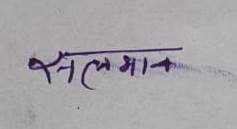 सलमान